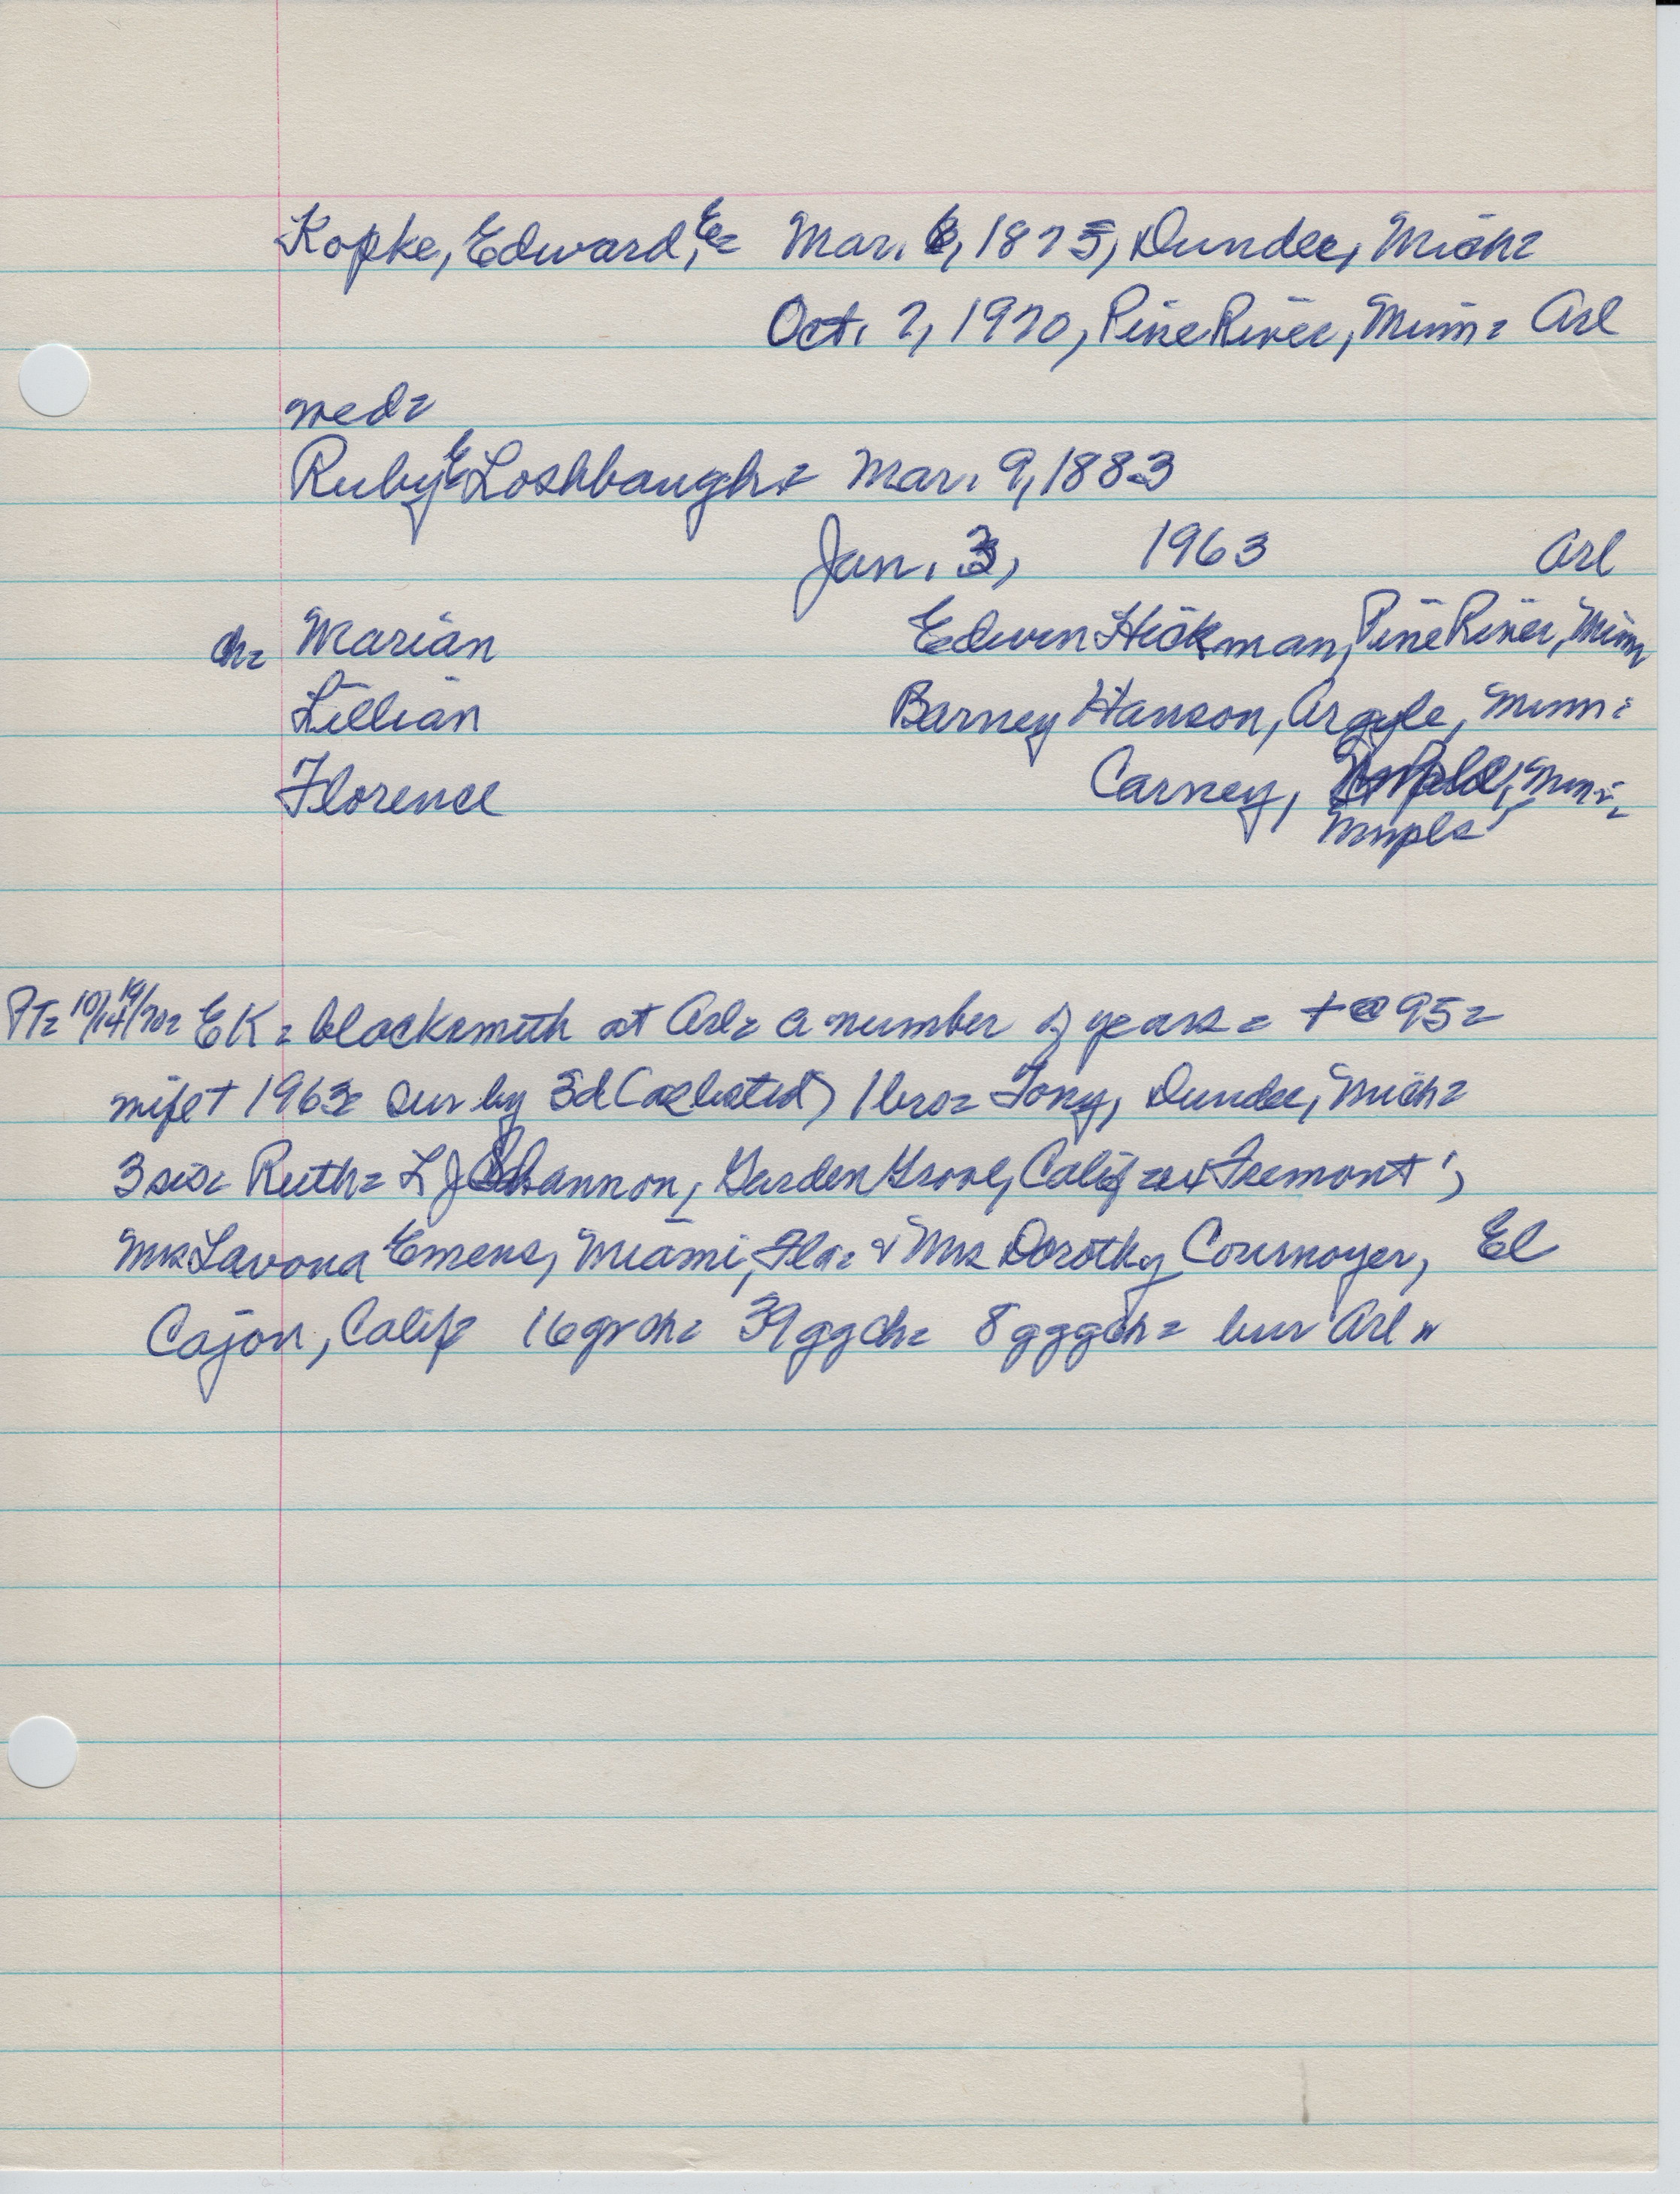 Kopke, Edward, E= Mar. 6, 1875, Dundee, Mich=
Oct. 7, 1970, Pine River, Minn= Arl
wed=
Ruby E Loshbaugh= Mar. 9, 1883
Jan. 3, 1963 Arl
ch= Marian Edwin Hickman, Pine River, Minn
Lillian Barney Hanson, Argyle, Minn=
Florence Carney, Minn=
Mnpls
PT= 10/14/70= EK= blacksmith at Arl= a number of years= + @ 95=
wife + 1963= sur by 3d (as listed) 1 bro= Tony, Dundee, Mich=
3 sis= Ruth= L J Shannon, Garden Grove, Calif= ex Fremont;
Mrs Lavona Emens, Miami, Fla= & Mrs Dorothy Cournoyer, El
Cajon, Calif= 16 gr ch= 39 ggch= 8 gggch= bur Arl=